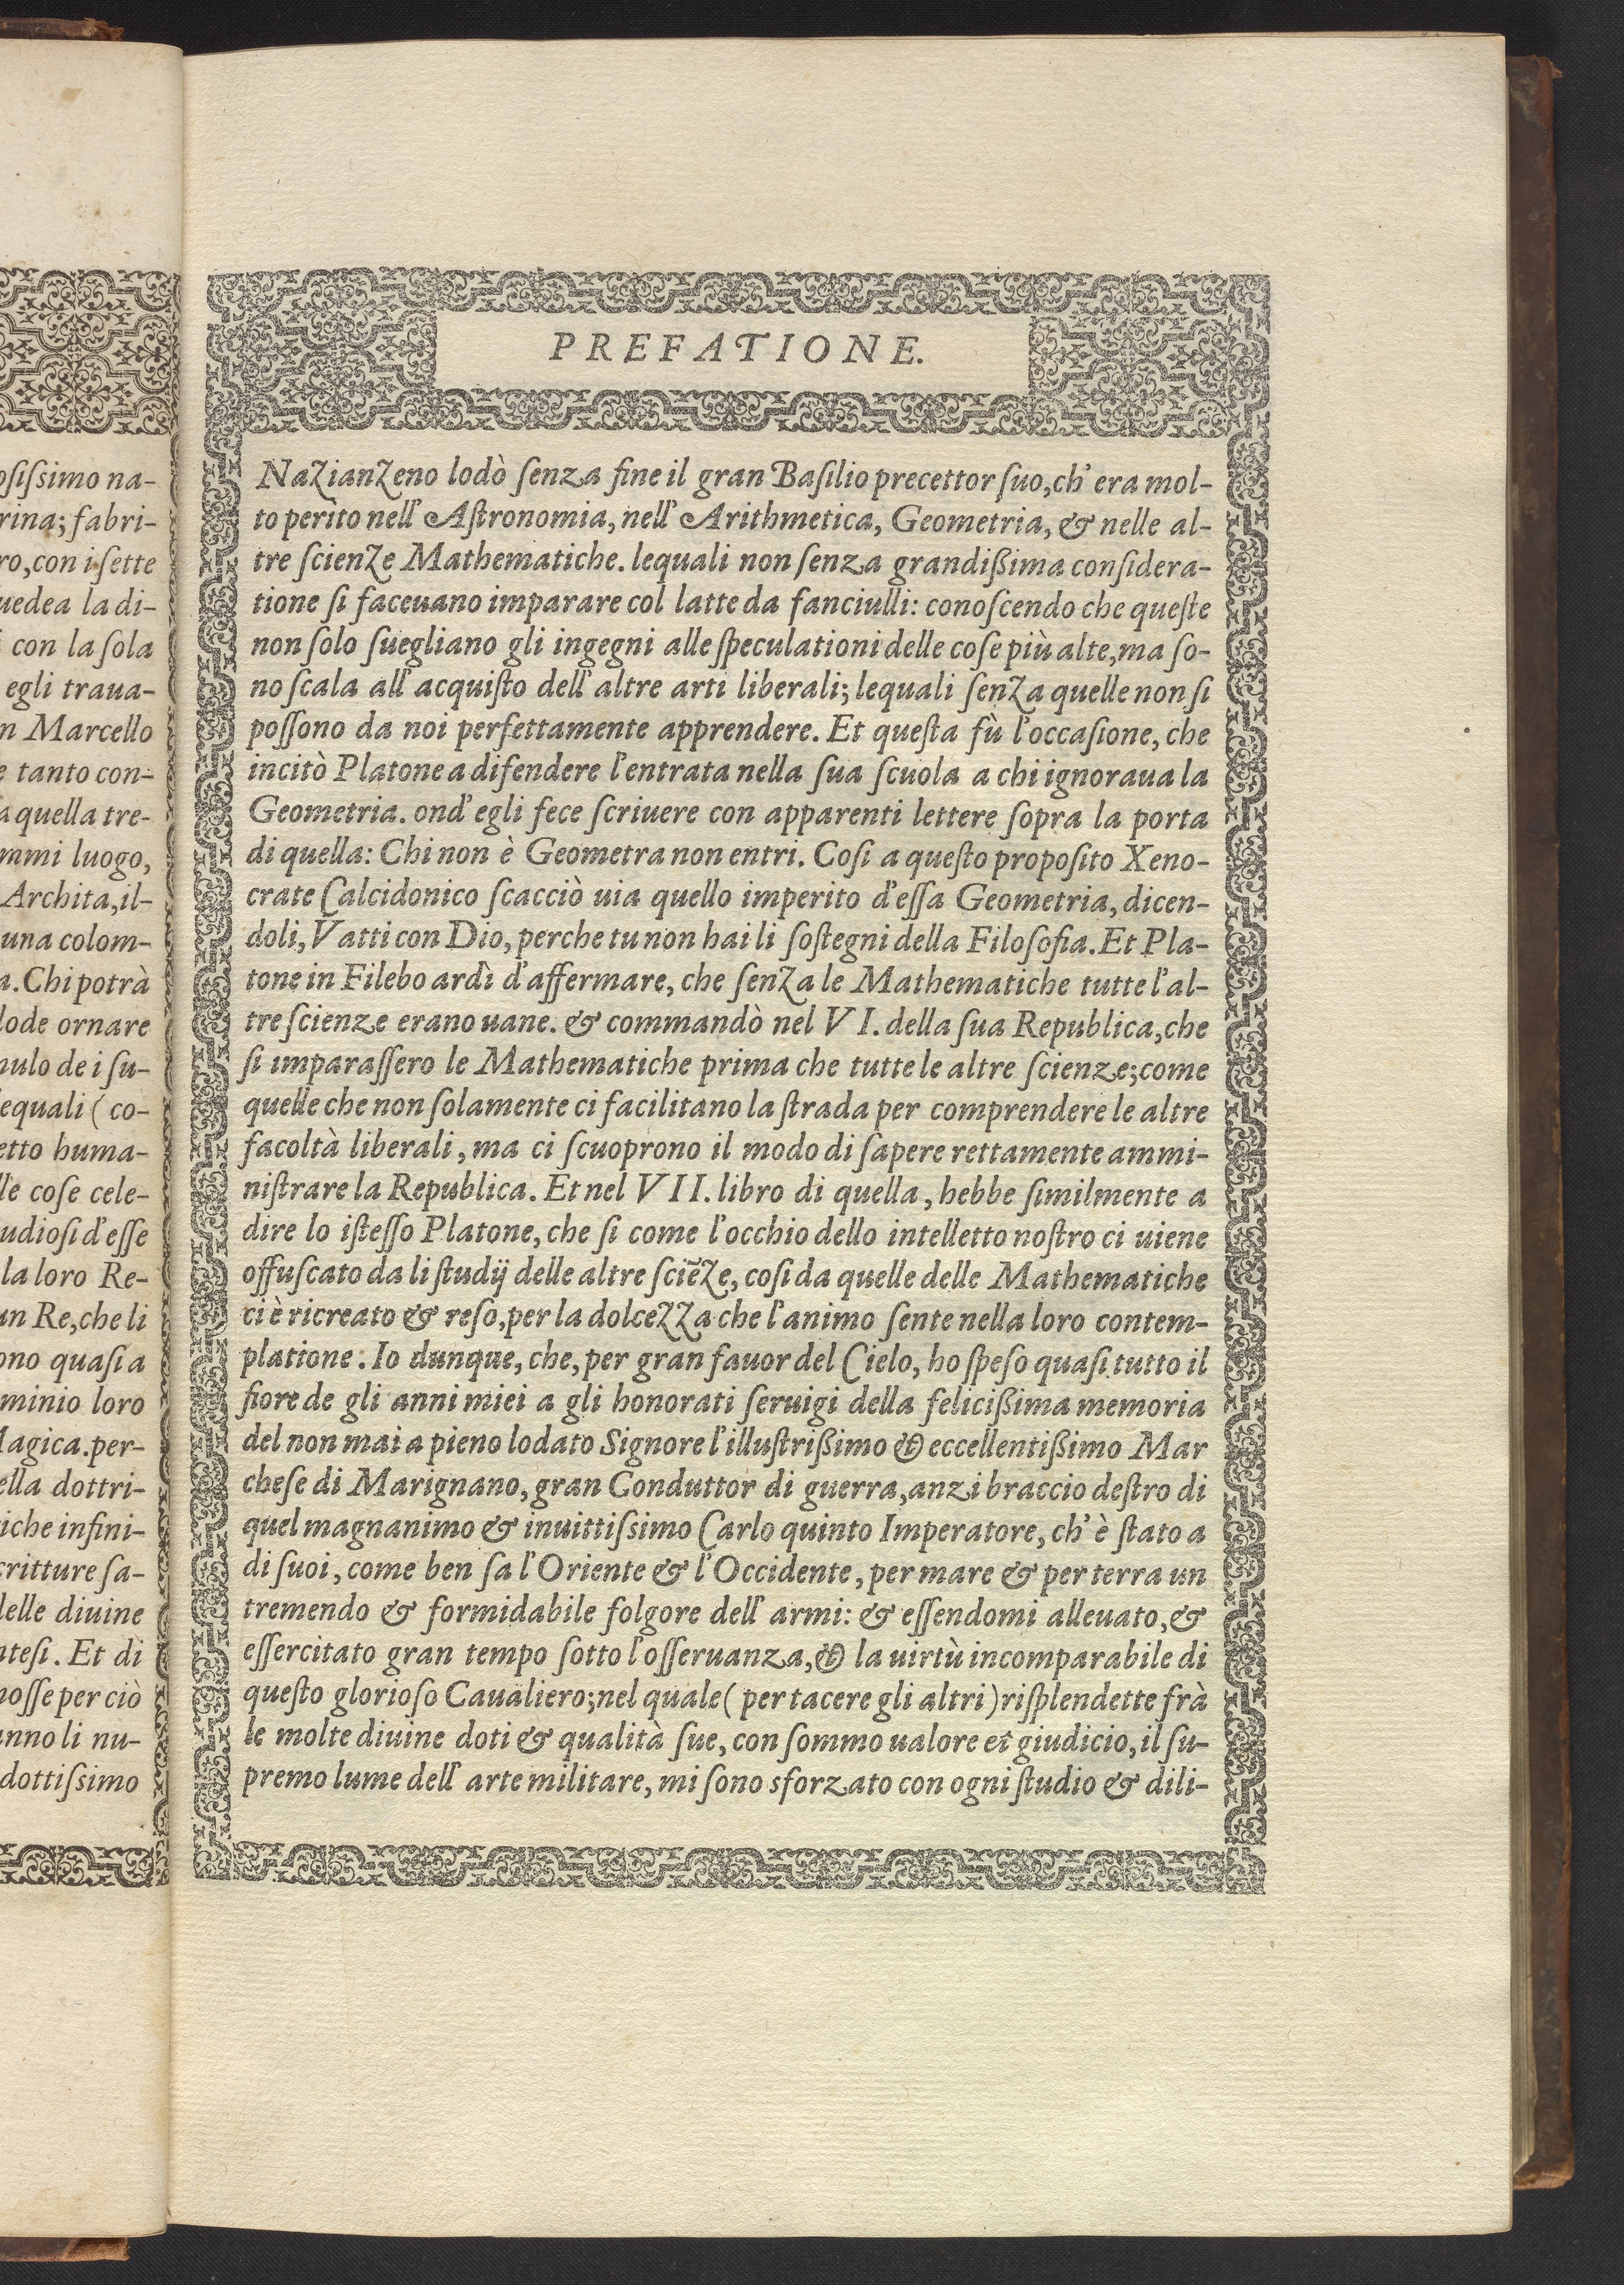 osissimo na-
rina; fabri-
ro, con i sette
uedea la di-
con la sola
egli traua-
n Marcello
e tanto con-
a quella tre-
mmi luogo,
Archita, il-
una colom-
a. Chi potrà
lode ornare
mulo de i su-
lequali (co-
etto huma-
lle cose cele-
udiosi d'esse
la loro Re-
un Re, che li
ono quasi a
minio loro
Magica. per-
ella dottri-
iche infini-
critture sa-
delle diuine
ntesi. Et di
mosse per ciò
anno li nu-
dottissimo
PREFATIONE.
Nazianzeno lodò senza fine il gran Basilio precettor suo, ch' era mol-
to perito nell' Astronomia, nell' Arithmetica, Geometria, & nelle al-
tre scienze Mathematiche. lequali non senza grandißima considera-
tione si faceuano imparare col latte da fanciulli: conoscendo che queste
non solo suegliano gli ingegni alle speculationi delle cose più alte, ma so-
no scala all' acquisto dell' altre arti liberali; lequali senza quelle non si
possono da noi perfettamente apprendere. Et questa fù l'occasione, che
incitò Platone a difendere l'entrata nella sua scuola a chi ignoraua la
Geometria. ond' egli fece scriuere con apparenti lettere sopra la porta
di quella: Chi non è Geometra non entri. Cosi a questo proposito Xeno-
crate Calcidonico scacciò uia quello imperito d'essa Geometria, dicen-
doli, Vatti con Dio, perche tu non hai li sostegni della Filosofia. Et Pla-
tone in Filebo ardì d'affermare, che senza le Mathematiche tutte l'al-
tre scienze erano uane. & commandò nel VI. della sua Republica, che
si imparassero le Mathematiche prima che tutte le altre scienze; come
quelle che non solamente ci facilitano la strada per comprendere le altre
facoltà liberali, ma ci scuoprono il modo di sapere rettamente ammi-
nistrare la Republica. Et nel VII. libro di quella, hebbe similmente a
dire lo istesso Platone, che si come l'occhio dello intelletto nostro ci uiene
offuscato da li studij delle altre sciẽze, cosi da quelle delle Mathematiche
ci è ricreato & reso, per la dolcezza che l'animo sente nella loro contem-
platione. Io dunque, che, per gran fauor del Cielo, ho speso quasi tutto il
fiore de gli anni miei a gli honorati seruigi della felicißima memoria
del non mai a pieno lodato Signore l'illustrißimo & eccellentißimo Mar
chese di Marignano, gran Conduttor di guerra, anzi braccio destro di
quel magnanimo & inuittissimo Carlo quinto Imperatore, ch' è stato a
di suoi, come ben sa l'Oriente & l'Occidente, per mare & per terra un
tremendo & formidabile folgore dell' armi: & essendomi alleuato, &
essercitato gran tempo sotto l'osseruanza, & la uirtù incomparabile di
questo glorioso Caualiero; nel quale (per tacere gli altri) risplendette frà
le molte diuine doti & qualità sue, con sommo ualore et giudicio, il su-
premo lume dell' arte militare, mi sono sforzato con ogni studio & dili-